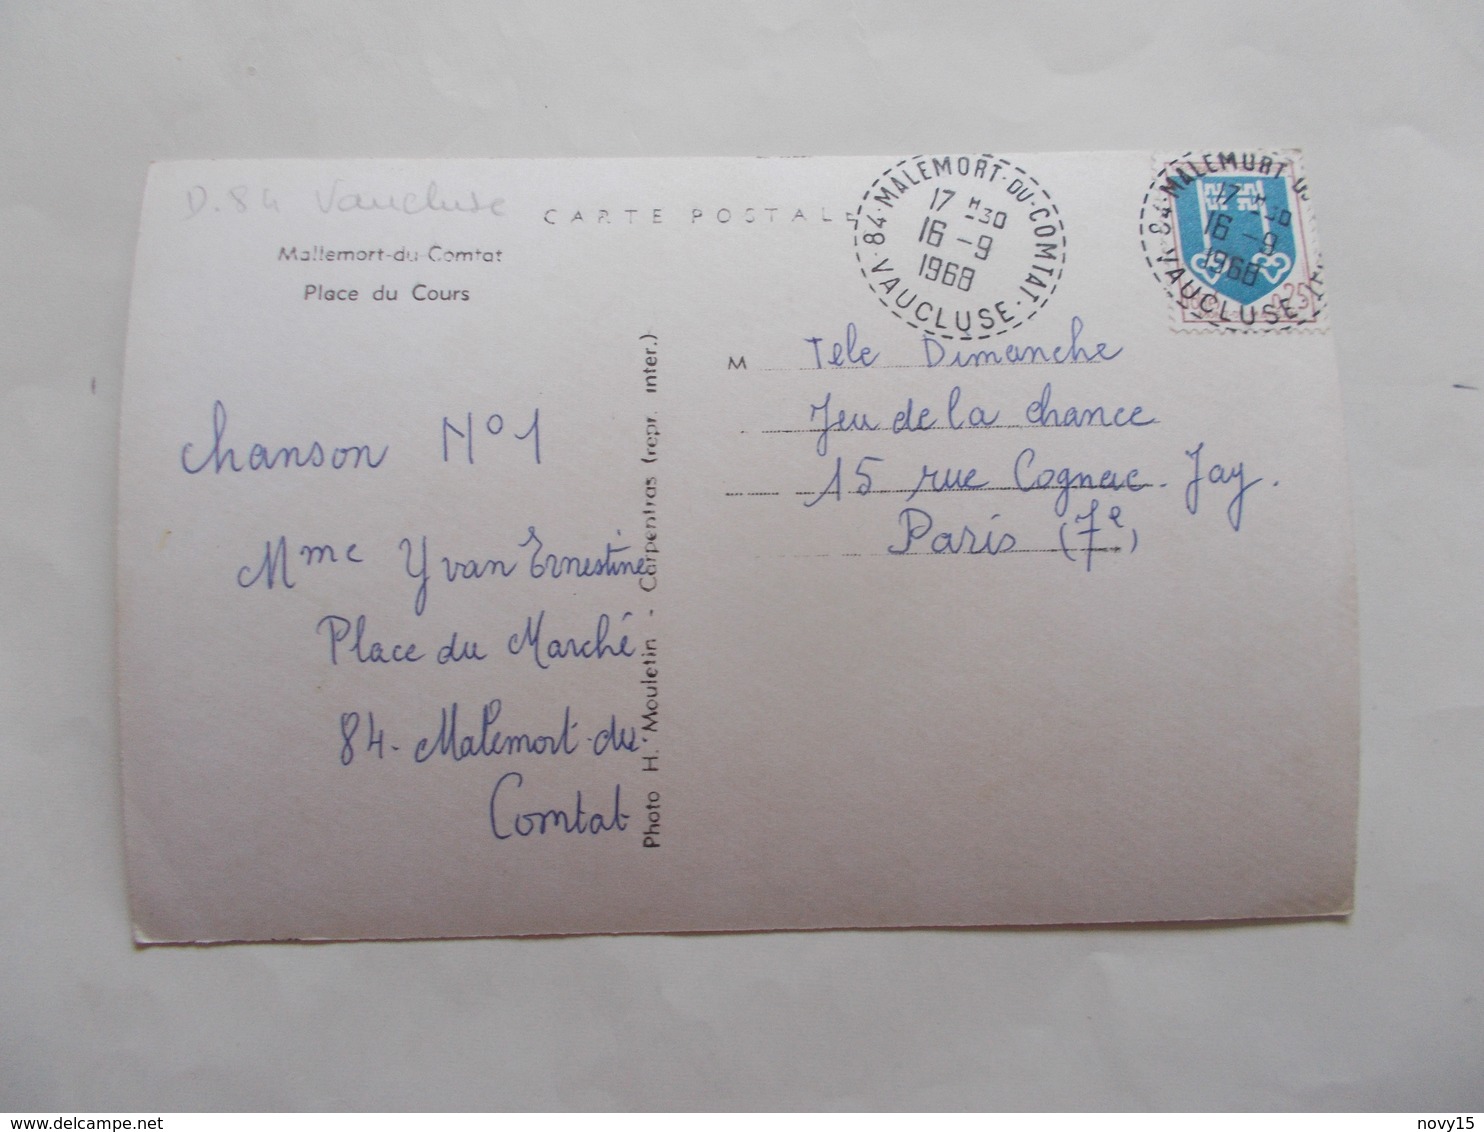 D.84 Vaucluse
CARTE POSTALE
Mallemort-du-Comtat
Place du Cours
84 · MALEMORT · DU · COMTAT · VAUCLUSE ·
17 H 30
16 - 9
1968
84 · MALEMORT DU
17 H 30
16 - 9
1968
VAUCLUSE
0,25
chanson N° 1
Mme Yvan Ernestine
Place du Marché
84 - Malemort-du-
Comtat
Photo H. Mouletin - Carpentras (repr. inter.)
M Tele Dimanche
Jeu de la chance
15 rue Cognac-Jay.
Paris (7e)
novy15